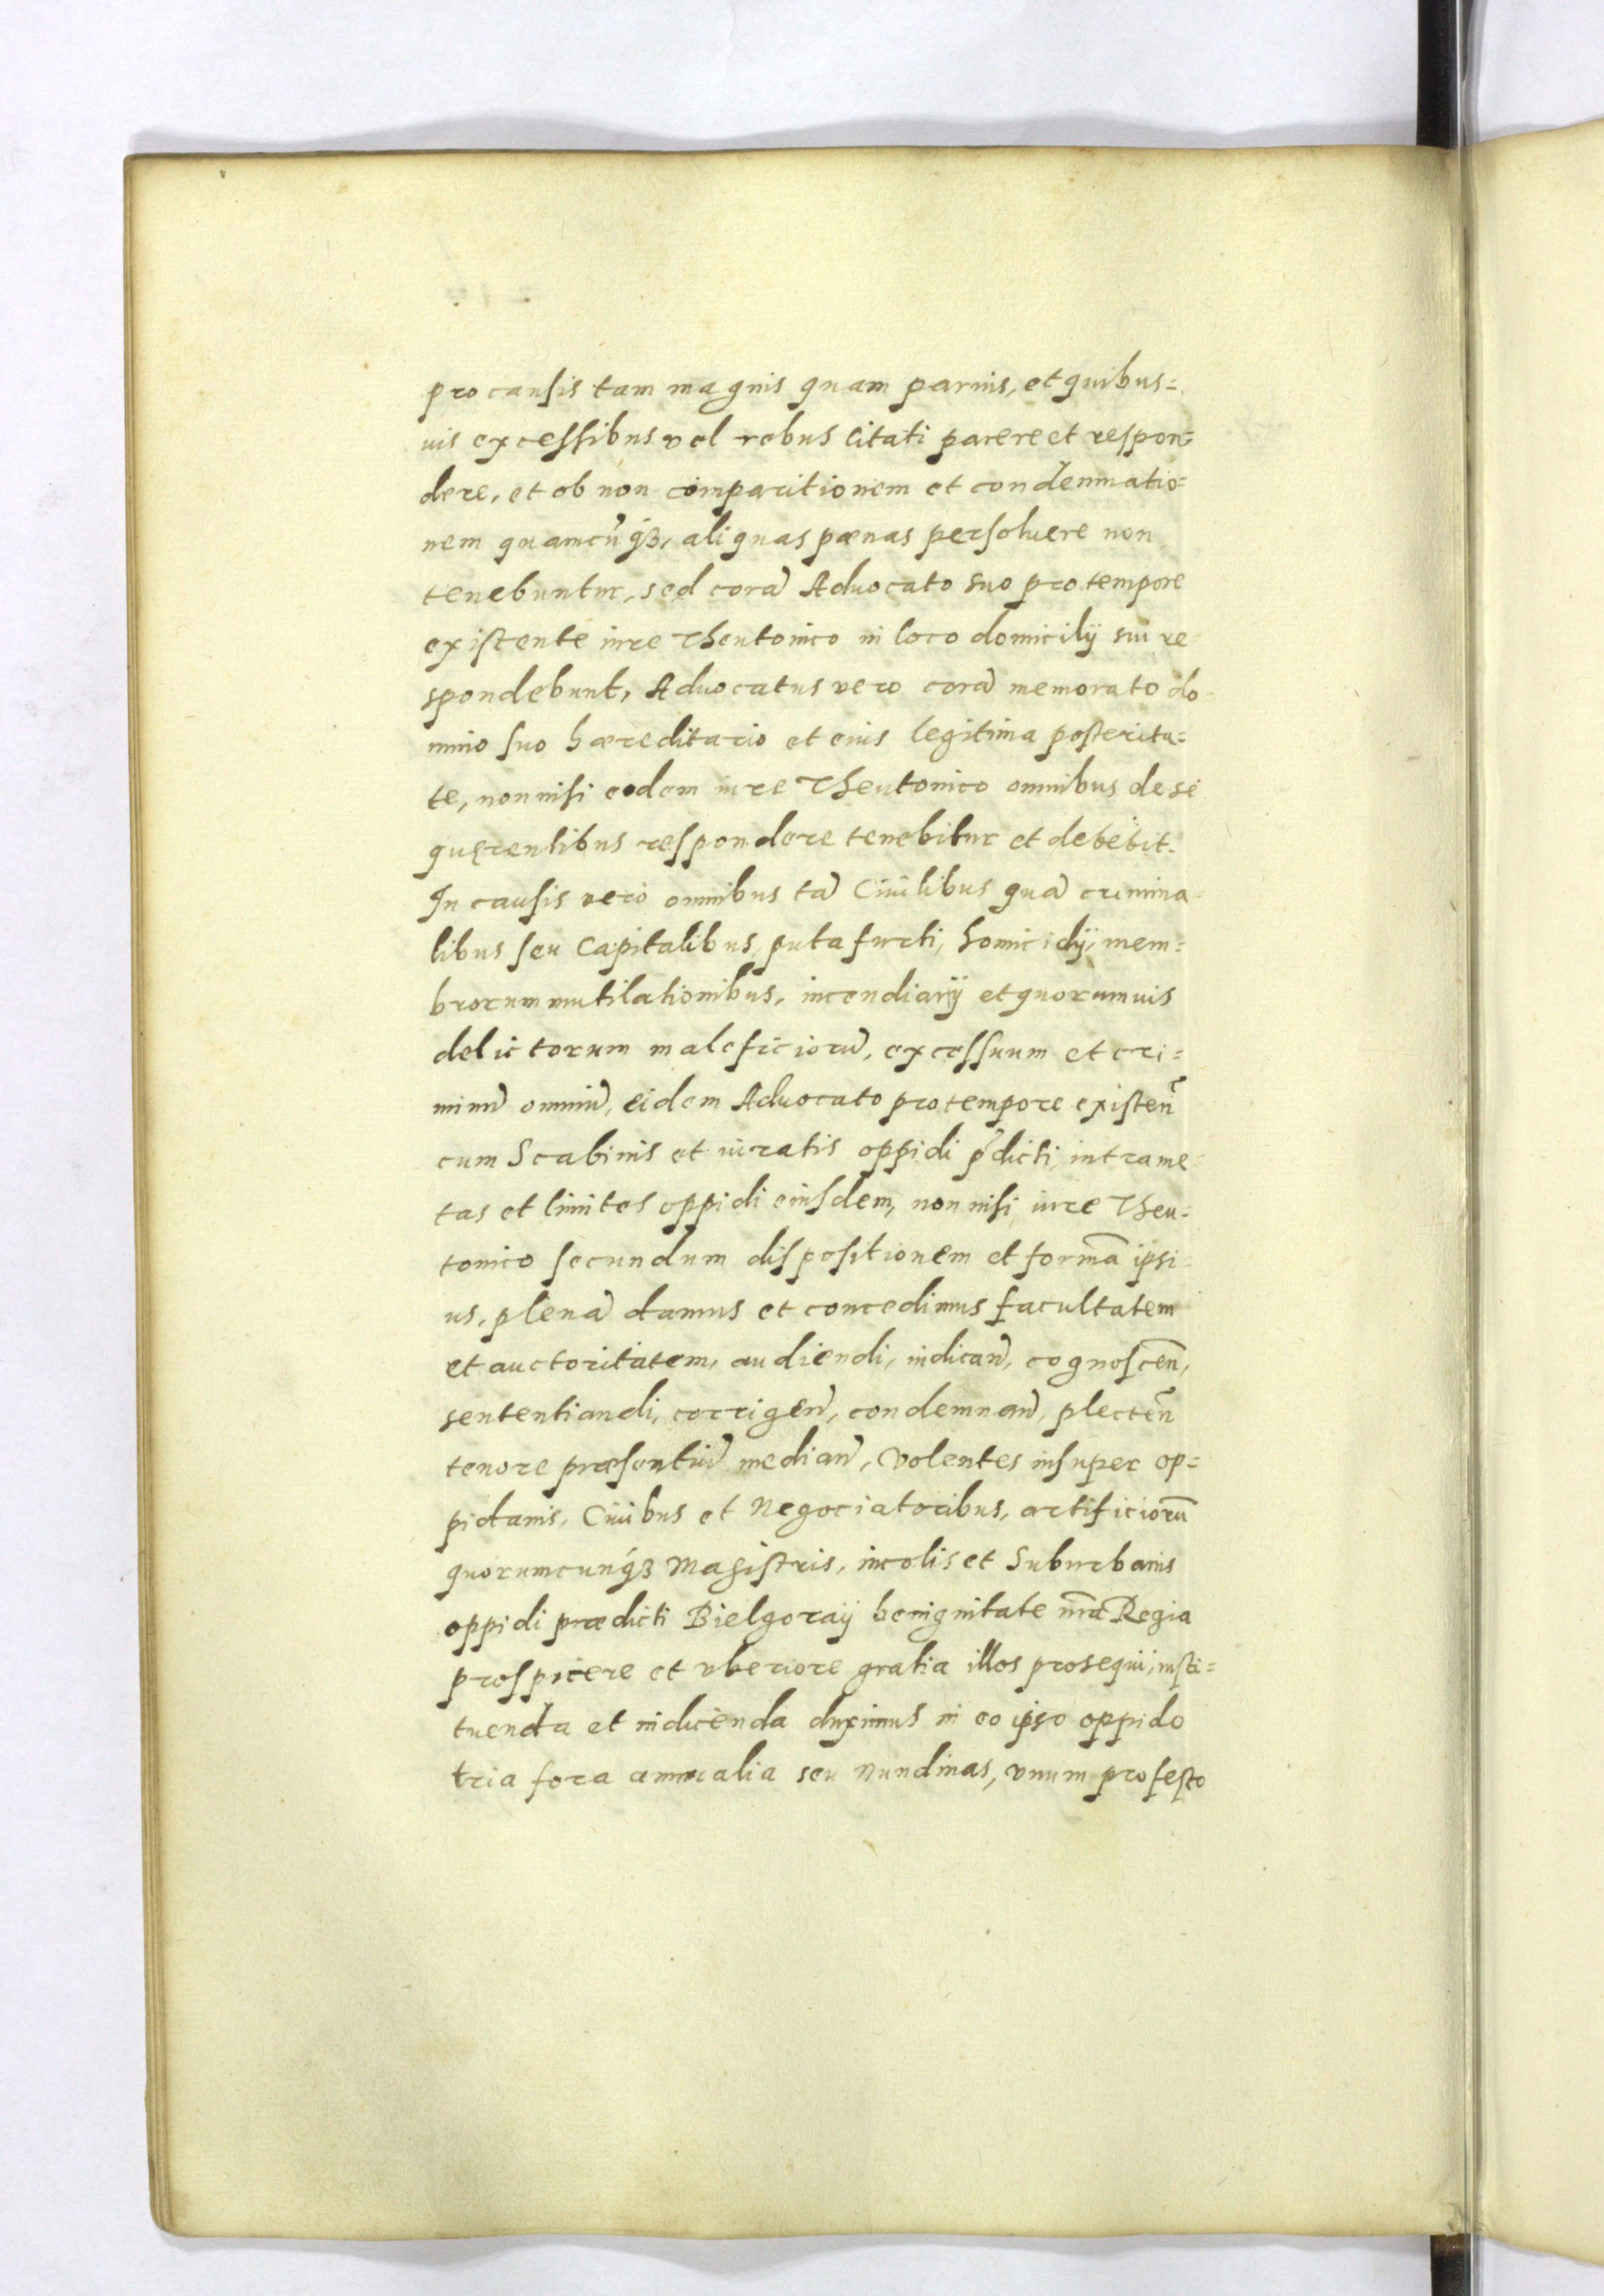 pro causis tam magnis quam paruis, et quibus=
uis excessibus vel rebus citati parere et respon=
dere, et ob non comparitionem et condemnatio=
nem quamcũq3, aliquas pœnas persoluere non
tenebuntur, sed corã Aduocato suo pro tempore
existente iure Theutonico in loco domicilij sui re
spondebunt, Aduocatus vero corã memorato do
mino suo hæreditario et eius legitima posterita=
te, non nisi eodem iure Theutonico omnibus de se
quęrentibus respondere tenebitur et debebit.
In causis vero omnibus tã Ciuilibus quã crimina
libus seu Capitalibus, puta furti, homicidij, mem=
brorum mutilationibus, incendiarij et quorumuis
delictorum maleficiorũ, excessuum et cri=
minũ omniũ, eidem Aduocato pro tempore existeñ
cum Scabinis et iuratis oppidi p̃dicti, intra me
tas et limites oppidi eiusdem, non nisi iure Theu=
tonico secundum dispositionem et formã ipsi=
us, plenã damus et concedimus facultatem
et auctoritatem, audiendi, iudicañ, cognosceñ,
sententiandi, corrigeñ, condemnañ, plecteñ
tenore præsentiũ mediañ, Volentes insuper op=
pidanis, Ciuibus et Negociatoribus, artificiorũ
quorumcunq3 Magistris, incolis et Suburbanis
oppidi prædicti Bielgoraij benignitate nr̃a Regia
prospicere et vberiore gratia illos prosequi, insti=
tuenda et indicenda duximus in eo ipso oppido
tria fora annualia seu Nundinas, vnum pro festo